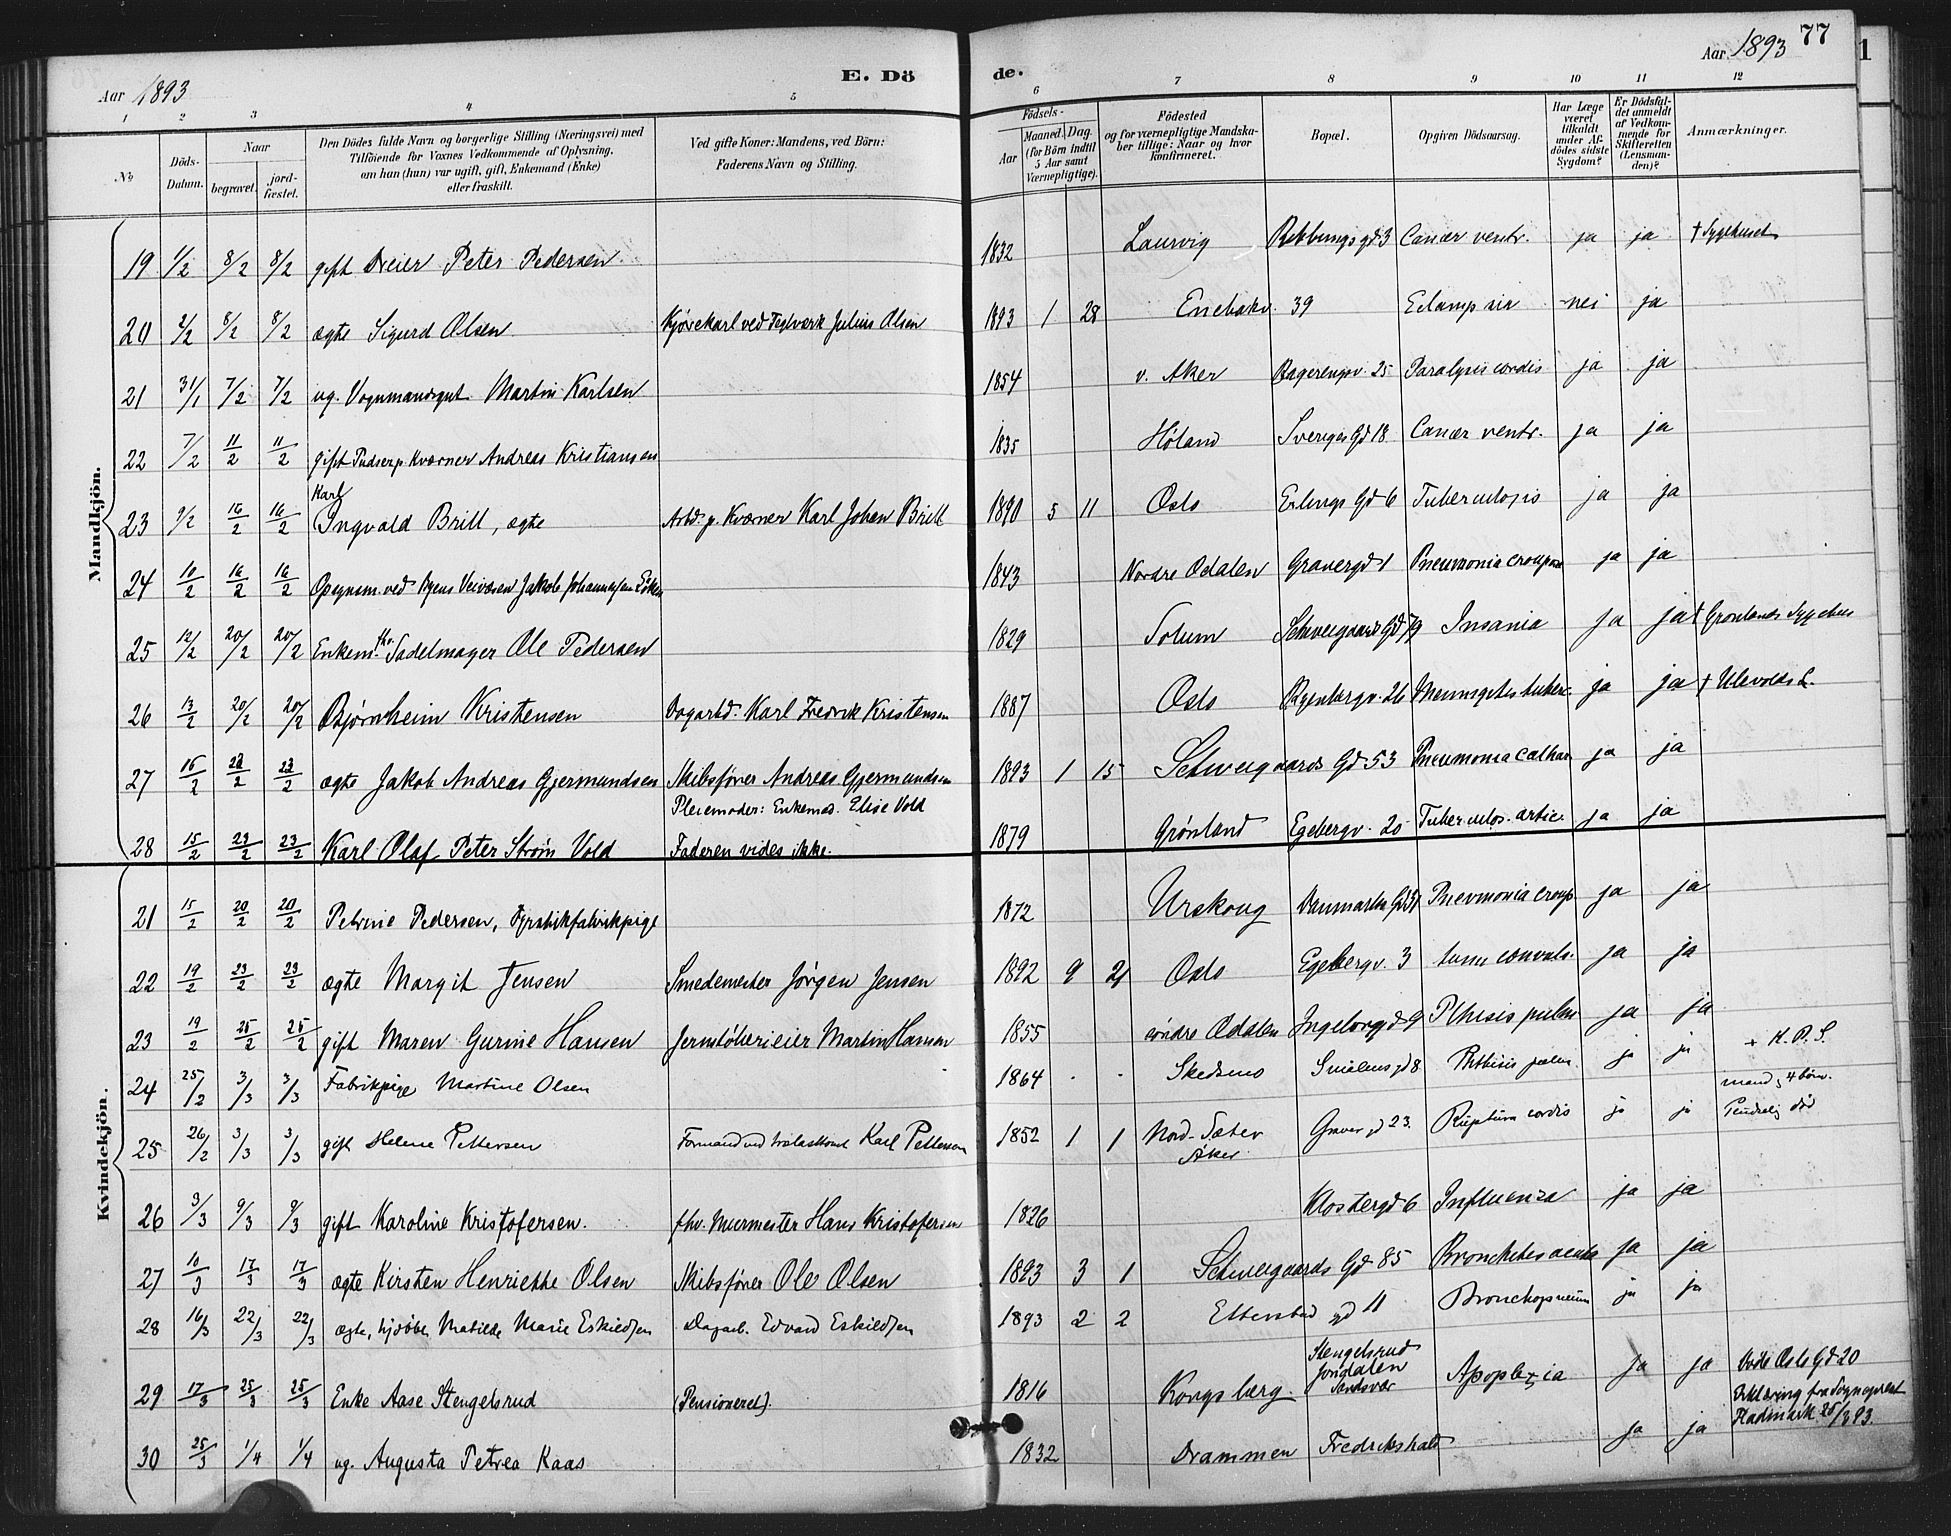 Aar 1893
E. Dö
de.
Aar 1893 77
1 2 3 4 5 6 7 8 9 10 11 12
No
Döds-Datum.
Naar
begravet.
jord-fæstet.
Den Dödes fulde Navn og borgerlige Stilling (Næringsvei) med
Tilföiende for Voxnes Vedkommende af Oplysning,
om han (hun) var ugift, gift, Enkemand (Enke)
eller fraskilt.
Ved gifte Koner: Mandens, ved Börn:
Faderens Navn og Stilling.
Födsels-
Aar
Maaned. Dag.
(for Börn indtil
5 Aar samt
Værnepligtige).
Födested
og for værnepligtige Mandska-
ber tillige: Naar og hvor
konfirmeret.
Bopæl.
Opgiven Dödsaarsag.
Har Læge
været
tilkaldt
under Af-
dödes sidste
Sygdom?
Er Dödsfal-
det anmeldt
af Vedkom-
mende for
Skifteretten
(Lensman-
den)?
Anmærkninger.
Mandkjön.
19 1/2 8/2 8/2 gift Dreier Peter Pedersen 1832 Laurvig Rebbungs gd 3 Cancer ventr. ja ja † Sygehuset
20 2/2 8/2 8/2 ægte Sigurd Olsen Kjørekarl ved Teglværk Julius Olsen 1893 1 28 Enebakv. 39 Eclampsia nei ja
21 31/1 7/2 7/2 ug. Vognmandsgut Martin Karlsen 1854 v. Aker 25 Paralysis cordis ja ja
22 7/2 11/2 11/2 gift Pudser p. Kværner Andreas Kristiansen 1835 Høland Sveriges Gd 18 Cancer ventr. ja ja
23 9/2 16/2 16/2 Karl Ingvald Brill, ægte Arbd. p. Kværner Karl Johan Brill 1890 5 11 Oslo Erlings Gd 6 Tuberculosis ja ja
24 10/2 16/2 16/2 Opsynsm. ved Byens Veivæsen Jakob Johannessen 1843 Nordre Odalen Gravergd 1 Pneumonia croupos ja ja
25 12/2 20/2 20/2 Enkem. fhv. Sadelmager Ole Pedersen 1829 Solum Schweigaards Gd 79 Insania ja ja † Grønlands Sygehus
26 13/2 20/2 20/2 Bjørnheim Kristensen Dagarbd. Karl Fredrik Kristensen 1887 Oslo Ryenbergv. 26 Meningitis tuberc. ja ja † Ulevolds S.
27 16/2 23/2 23/2 ægte Jakob Andreas Gjermundsen Skibsfører Andreas Gjermundsen 1893 1 15 Schweigaards Gd 53 Pneumonia cathar ja ja
Pleiemoder: Enkemad. Elise Vold
28 15/2 23/2 23/2 Karl Olaf Peter Strøm Vold Faderen vides ikke. 1879 Grønland Egebergv. 25 Tuberculos. artic. ja ja
Kvindekjön.
21 15/2 20/2 20/2 Petrine Pedersen, Fyrstikfabrikpige 1872 Urskoug Danmarks Gd 31 Pneumonia croup. ja ja
22 19/2 23/2 23/2 ægte Margit Jensen Smedemester Jørgen Jensen 1892 9 21 Oslo Egebergv. 3 tuss. convuls. ja ja
23 19/2 25/2 25/2 gift Maren Gurine Hansen Jernstøberieier Martin Hansen 1855 søndre Odalen Ingeborggd 9 Pthisis pulm ja ja
24 25/2 3/3 3/3 Fabrikpige Martine Olsen 1864 . . Skedsmo Smålensgd 8 Phthisis pulm. ja ja + K. P. S.
25 26/2 3/3 3/3 gift Helene Pettersen Formand ved trælasttomt Karl Pettersen 1852 1 1 Nord-Sæter Aker Graver gd 23. Ruptura cordis ja ja mand, 4 børn. Pludselig død
26 3/3 9/3 9/3 gift Karoline Kristofersen. fhv. Murmester Hans Kristofersen 1826 Klostergd 6 Influenza ja ja
27 10/3 17/3 17/3 ægte Kirsten Henriette Olsen Skibsfører Ole Olsen 1893 3 1 Schweigaards Gd 85 Bronchites acuta ja ja
28 16/3 22/3 22/3 ægte, hjdøbt Matilde Marie Eskildsen Dagarb. Edvard Eskildsen 1893 2 2 Etterstad gd 11 Bronchopneum ja ja
29 17/3 25/3 25/3 Enke Aase Stengelsrud (Pensioneret). 1816 Kongsberg Stengelsrud Jondalen Sandsvær Apoplexia ja ja Døde Oslo Gd 20
Erklæring fra Sogneprest
25/3 93.
30 25/3 1/4 1/4 ug. Augusta Petrea Kaas 1832 Drammen Fredrikshald ja ja